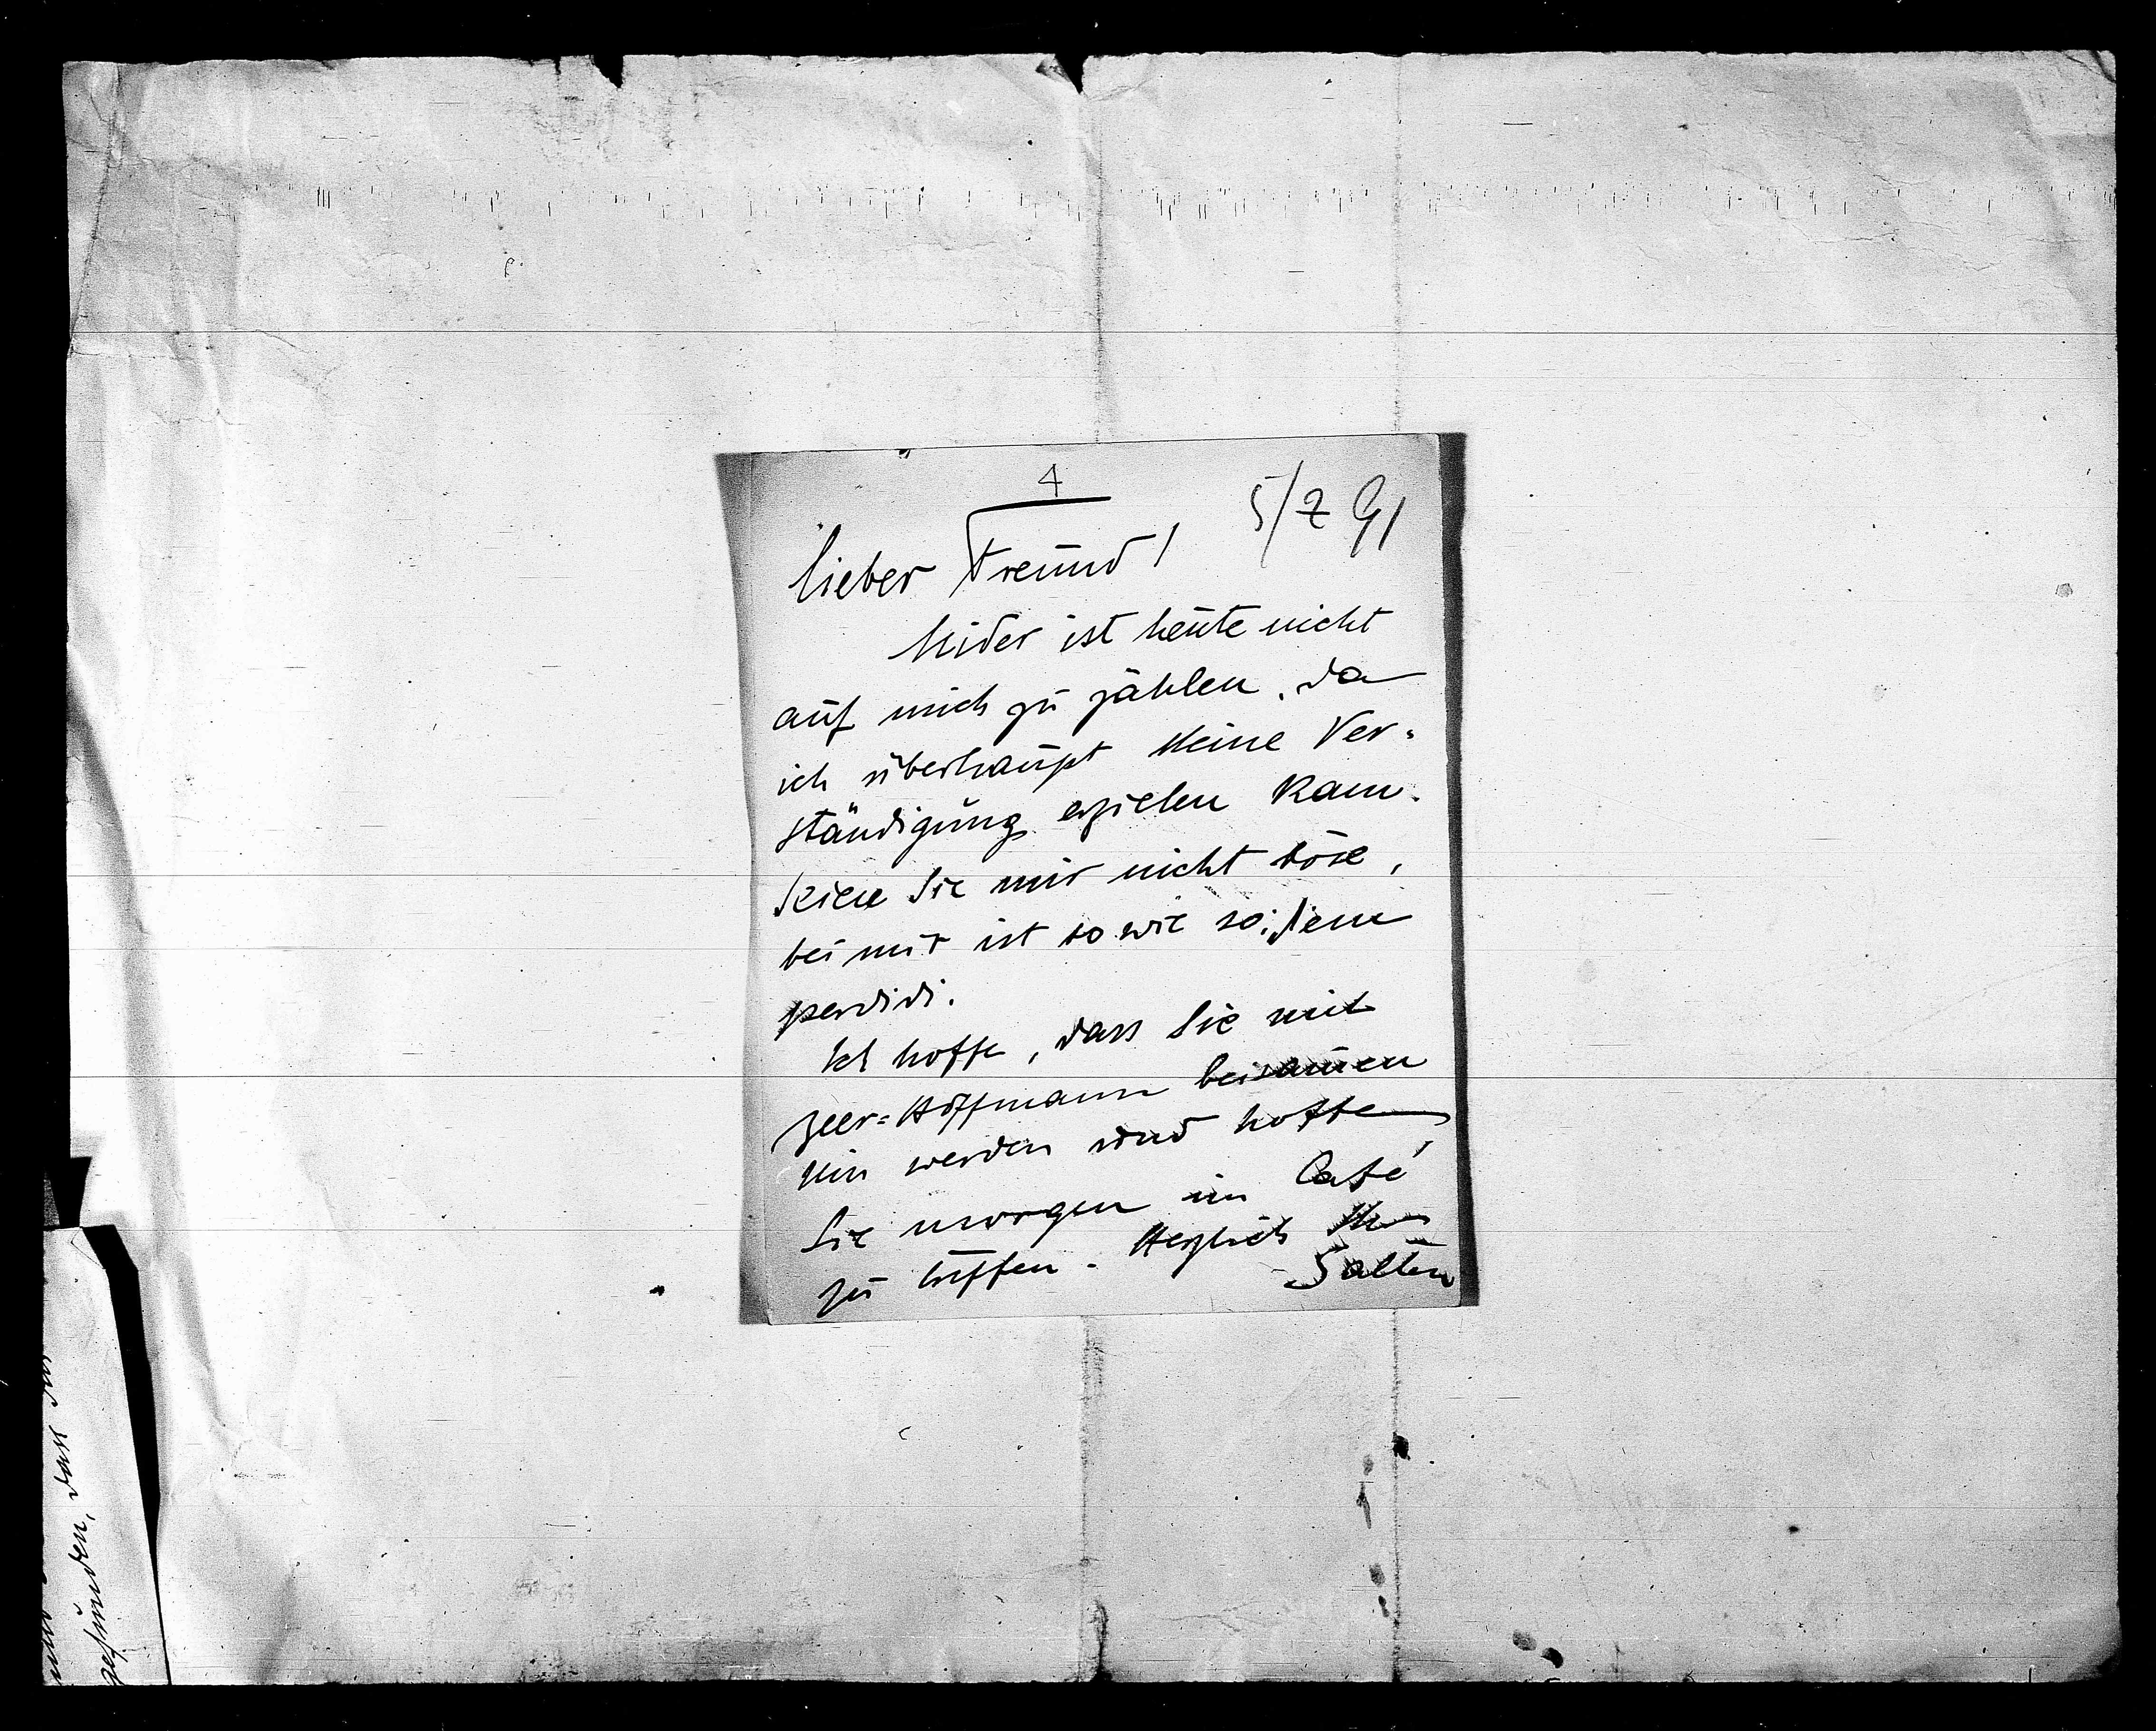 4
5/2 91
Lieber Freund!
Leider ist heute nicht
auf mich zu zählen, da
ich überhaupt keine Ver-
ständigung erzielen kann.
Seien Sie mir nicht böse,
bei mir ist so wie so: diem
perdidi.
Ich hoffe, dass Sie mit
Beer-Hoffmann beisam̄en
sein werden und hoffe
Sie morgen im Café
zu treffen. Herzlich Ihr
Salten
gefunden, dass